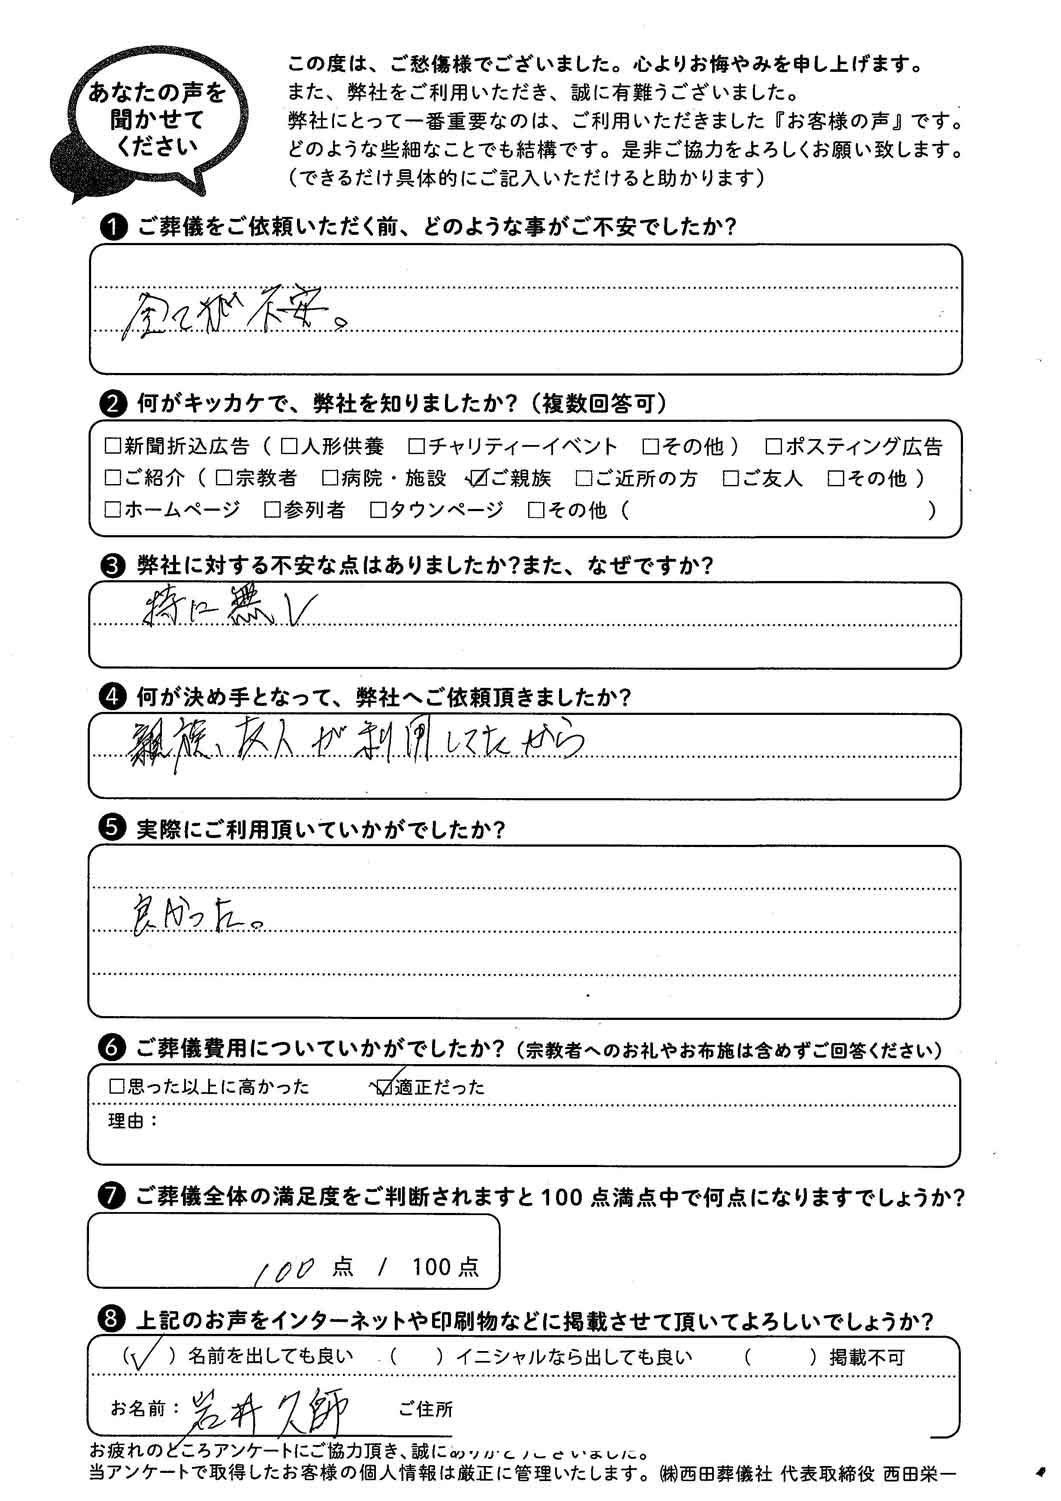 あなたの声を
聞かせて
ください
この度は、ご愁傷様でございました。心よりお悔やみを申し上げます。
また、弊社をご利用いただき、誠に有難うございました。
弊社にとって一番重要なのは、ご利用いただきました『お客様の声』です。
どのような些細なことでも結構です。是非ご協力をよろしくお願い致します。
（できるだけ具体的にご記入いただけると助かります）
❶ ご葬儀をご依頼いただく前、どのような事がご不安でしたか?
全てが不安。
❷ 何がキッカケで、弊社を知りましたか?（複数回答可）
□新聞折込広告（□人形供養 □チャリティーイベント □その他） □ポスティング広告
□ご紹介（□宗教者 □病院・施設 ☑ご親族 □ご近所の方 □ご友人 □その他）
□ホームページ □参列者 □タウンページ □その他（ ）
❸ 弊社に対する不安な点はありましたか?また、なぜですか?
特に無し
❹ 何が決め手となって、弊社へご依頼頂きましたか?
親族、友人が利用してたから
❺ 実際にご利用頂いていかがでしたか?
良かった。
❻ ご葬儀費用についていかがでしたか?（宗教者へのお礼やお布施は含めずご回答ください）
□思った以上に高かった ☑適正だった
理由：
❼ ご葬儀全体の満足度をご判断されますと100点満点中で何点になりますでしょうか?
100 点 / 100点
❽ 上記のお声をインターネットや印刷物などに掲載させて頂いてよろしいでしょうか?
（✓）名前を出しても良い （ ）イニシャルなら出しても良い （ ）掲載不可
お名前：岩井久師 ご住所
お疲れのところアンケートにご協力頂き、誠にありがとうございました。
当アンケートで取得したお客様の個人情報は厳正に管理いたします。㈱西田葬儀社 代表取締役 西田栄一